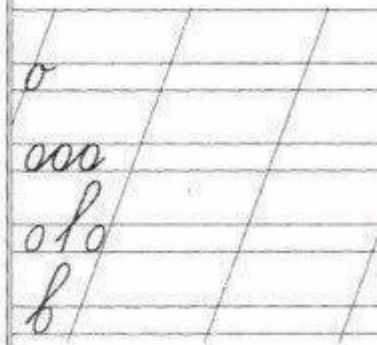 о
ооо
о о
в